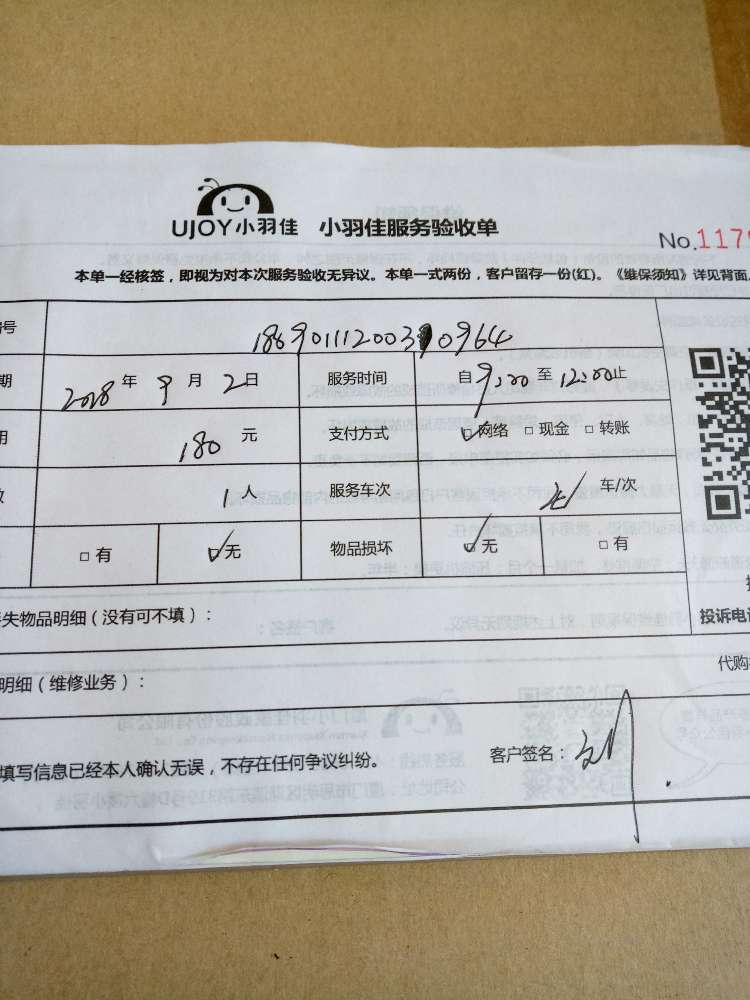 UJOY小羽佳 小羽佳服务验收单
No.117
本单一经核签，即视为对本次服务验收无异议。本单一式两份，客户留存一份(红)。《维保须知》详见背面
号 1869011120030964
期 2018年9月2日 服务时间 自9:00至12:00止
用 180元 支付方式 网络 现金 转账
数 1人 服务车次 车/次
有 无 物品损坏 无 有
失物品明细（没有可不填）： 投诉电
明细（维修业务）： 代购
填写信息已经本人确认无误，不存在任何争议纠纷。 客户签名：